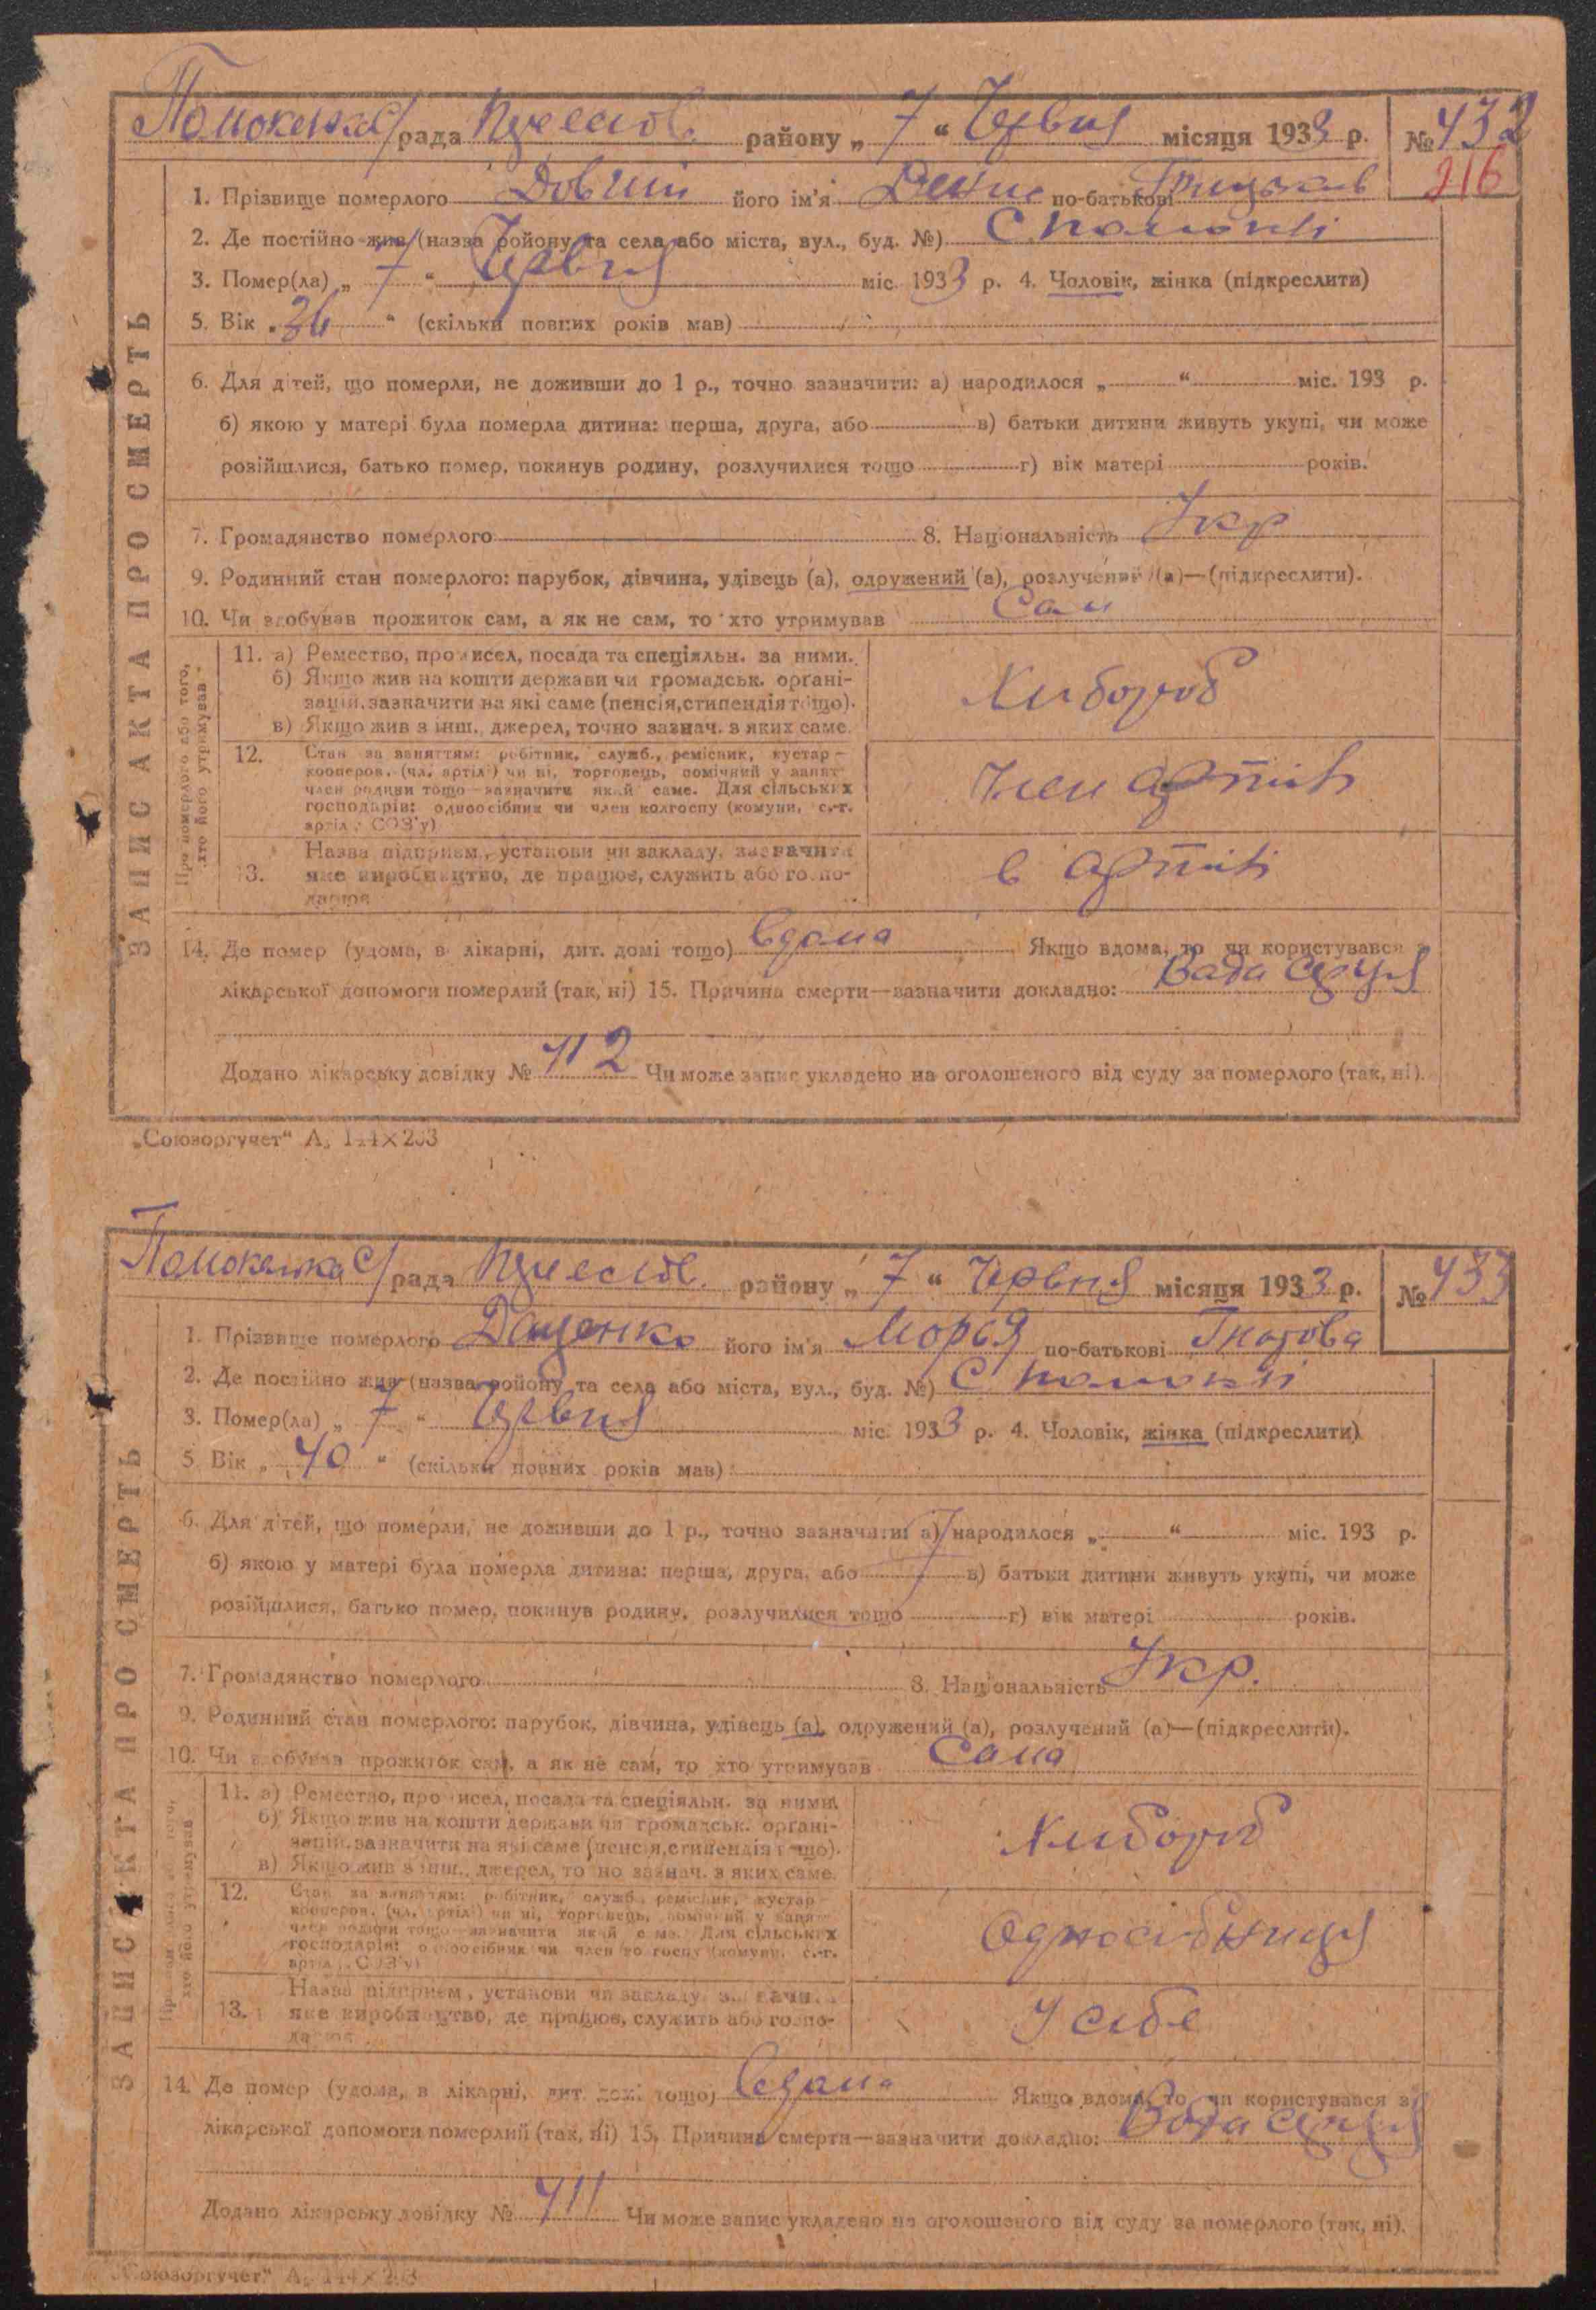 рада району „ 7 “ Червня місяця 1933 р. № 432
216
1. Прізвище померлого Довгий його ім'я Денис по-батькові
2. Де постійно жив (назва ройону та села або міста, вул., буд. №) С
3. Помер(ла) „ 7 “ Червня міс. 1933 р. 4. Чоловік, жінка (підкреслити)
5. Вік „ 36 “ (скільки повних років мав)
6. Для дітей, що померли, не доживши до 1 р., точно зазначити: а) народилося „ “ міс. 193 р.
б) якою у матері була померла дитина: перша, друга, або в) батьки дитини живуть укупі, чи може
розійшлися, батько помер, покинув родину, розлучилися тощо г) вік матері років.
7. Громадянство померлого 8. Національність Укр
9. Родинний стан померлого: парубок, дівчина, удівець (а), одружений (а), розлучений (а)—(підкреслити).
10. Чи здобував прожиток сам, а як не сам, то хто утримував Сам
ЗАПИС АКТА ПРО СМЕРТЬ
Про померлого або того, хто його утримував
11. а) Ремество, промисел, посада та спеціяльн. за ними.
б) Якщо жив на кошти держави чи громадськ. органі-
зацій, зазначити на які саме (пенсія, стипендія тощо).
в) Якщо жив з інш. джерел, точно зазнач. з яких саме.
Хлибороб
12. Стан за заняттям: робітник, служб., ремісник, кустар—
кооперов. (чл. артілі) чи ні, торговець, помічний у занят
член родини тощо—зазначити який саме. Для сільських
господарів: одноосібник чи член колгоспу (комуни, с.-г.
артілі, СОЗ'у)
Член артіли
13. Назва підприєм., установи чи закладу, зазначити
яке виробництво, де працює, служить або госпо-
дарює
в артіли
14. Де помер (удома, в лікарні, дит. домі тощо) вдома Якщо вдома, то чи користувався з
лікарської допомоги померлий (так, ні) 15. Причина смерти—зазначити докладно: Вада серця
Додано лікарську довідку № 412 Чи може запис укладено на оголошеного від суду за померлого (так, ні).
„Союзоргучет“ А₅ 144×203
рада району „ 7 “ Червня місяця 1933 р. № 433
1. Прізвище померлого Даценко його ім'я Морья по-батькові Гнатова
2. Де постійно жив (назва ройону та села або міста, вул., буд. №) С
3. Помер(ла) „ 7 “ Червня міс. 1933 р. 4. Чоловік, жінка (підкреслити)
5. Вік „ 40 “ (скільки повних років мав)
6. Для дітей, що померли, не доживши до 1 р., точно зазначити: а) народилося „ “ міс. 193 р.
б) якою у матері була померла дитина: перша, друга, або в) батьки дитини живуть укупі, чи може
розійшлися, батько помер, покинув родину, розлучилися тощо г) вік матері років.
7. Громадянство померлого 8. Національність Укр.
9. Родинний стан померлого: парубок, дівчина, удівець (а), одружений (а), розлучений (а)—(підкреслити).
10. Чи здобував прожиток сам, а як не сам, то хто утримував Сама
ЗАПИС АКТА ПРО СМЕРТЬ
Про померлого або того, хто його утримував
11. а) Ремество, промисел, посада та спеціяльн. за ними.
б) Якщо жив на кошти держави чи громадськ. органі-
зацій, зазначити на які саме (пенсія, стипендія тощо).
в) Якщо жив з інш. джерел, точно зазнач. з яких саме.
Хлибороб
12. Стан за заняттям: робітник, служб., ремісник, кустар—
кооперов. (чл. артілі) чи ні, торговець, помічний у занят
член родини тощо—зазначити який саме. Для сільських
господарів: одноосібник чи член колгоспу (комуни, с.-г.
артілі, СОЗ'у)
Одноосібниця
13. Назва підприєм., установи чи закладу, зазначити
яке виробництво, де працює, служить або госпо-
дарює
У себе
14. Де помер (удома, в лікарні, дит. домі тощо) вдома Якщо вдома, то чи користувався з
лікарської допомоги померлий (так, ні) 15. Причина смерти—зазначити докладно: Вода серця
Додано лікарську довідку № 411 Чи може запис укладено на оголошеного від суду за померлого (так, ні).
„Союзоргучет“ А₅ 144×203